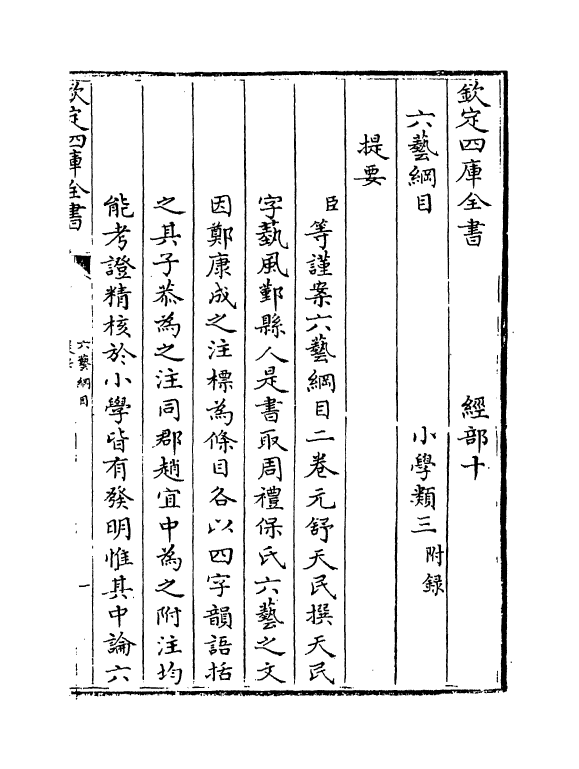 欽定四庫全書 經部十
六藝綱目 小學類三附録
提要
臣等謹案六藝綱目二卷元舒天民撰天民
字藝風鄞縣人是書取周禮保氏六藝之文
因鄭康成之注標為條目各以四字韻語括
之其子恭為之注同郡趙宜中為之附注均
能考證精核於小學皆有發明惟其中論六
欽定四庫全書
六藝綱目
一